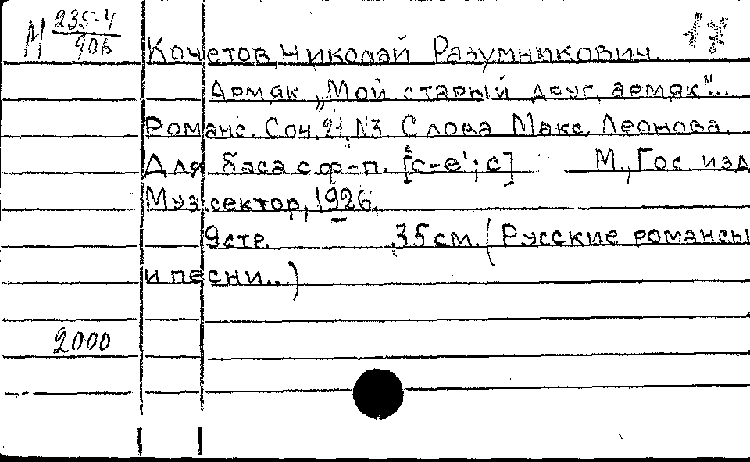 М 235-4
906
17
Кочетов, Николай Разумникович.
Армяк „Мой старый друг, армяк"...
Романс. Соч. 21, №3. Слова Макс. Леонова.
Для баса с ф-п. [c-e'; c] М., Гос изд
Муз.сектор, 1926.
9стр. 35см. (Русские романсы
и песни...)
2000